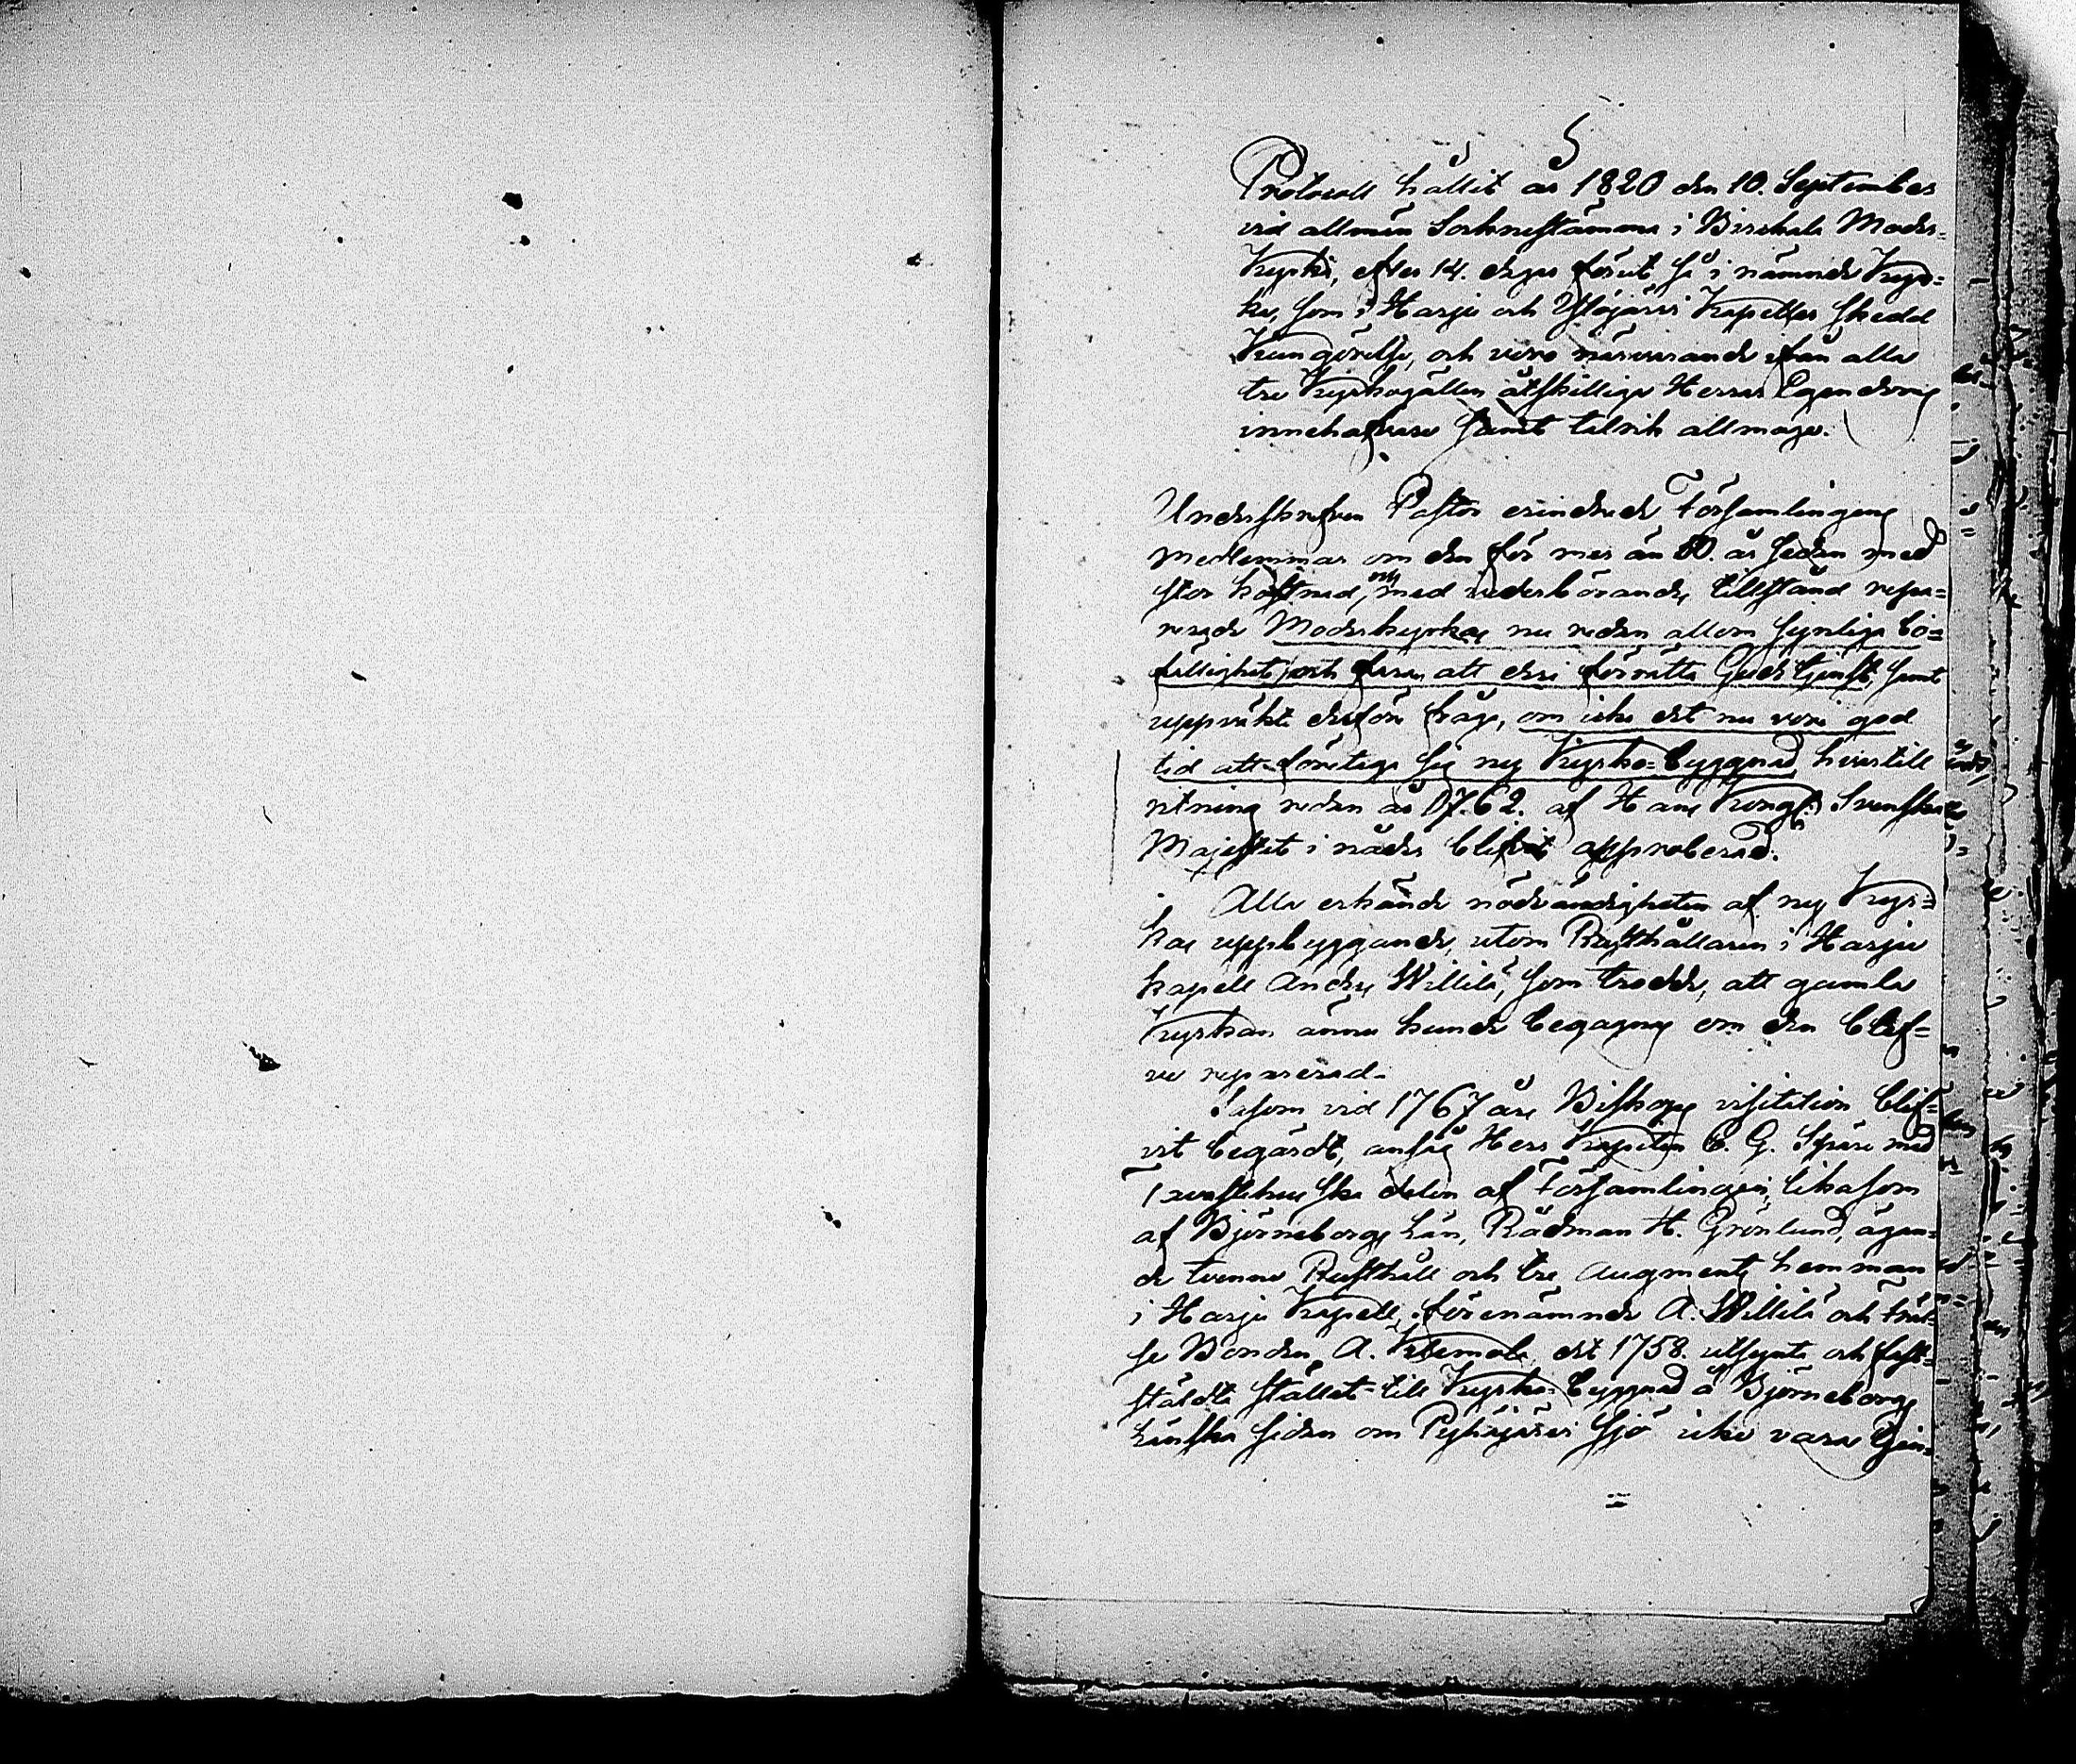 5
Protocoll hållit år 1820 den 10. September
vid allmän Sockenstämma i Birckala Moder=
Kyrka, efter 14. dagar förut så i nämnde Kyr=
ka, som i Harju och Ylöjärvi Kapeller skedd
Kungörelse, och voro närvarande ifrån alla
tre Kyrkogällen åtskillige Herrar Egendoms
innehafvare samt talrik allmoge.
Underskrefven Pastor erindrade Församlingens
medlemmar om den för mer än 50. år sedan med
stor kostnad, med vederbörandes tillstånd repa=
rerade Moderkyrkas nu redan allom synliga bo=
fällighet, och faran att deri förrätta Gudstjenst, samt
uppväkte derföre fråga, om icke det nu vore god
tid att företaga sig ny Kyrko=byggnad, hvartill
ritning redan år 1762. af Hans Kongl. Svenska
Majestet i nåder blifvit approberad.
Alla erkände nödvändigheten af ny Kyr=
kas uppbyggande, utom Rusthållaren i Harju
kapell Anders Willilä, som trodde, att gamla
Kyrkan ännu kunde begagnas om den blef=
ve reparerad.
Såsom vid 1767 års Biskops visitation blif=
vit begärdt, ansåg Herr Kapiten C. G. Spåre med
Tavastehuska delen af Församlingen, likasom
af Björneborgs Län, Rådman H. Grönlund, ägan=
de tvenne Rusthåll och tre Augments hemman
i Harju Kapell, förenämnde A. Willilä och fräl=
se Bonden A. det 1758. utsynta och fast=
stälda stället till Kyrko=byggnad å Björneborgs
Länska sidan om Pyhäjärvi sjö icke vara tjen=
=